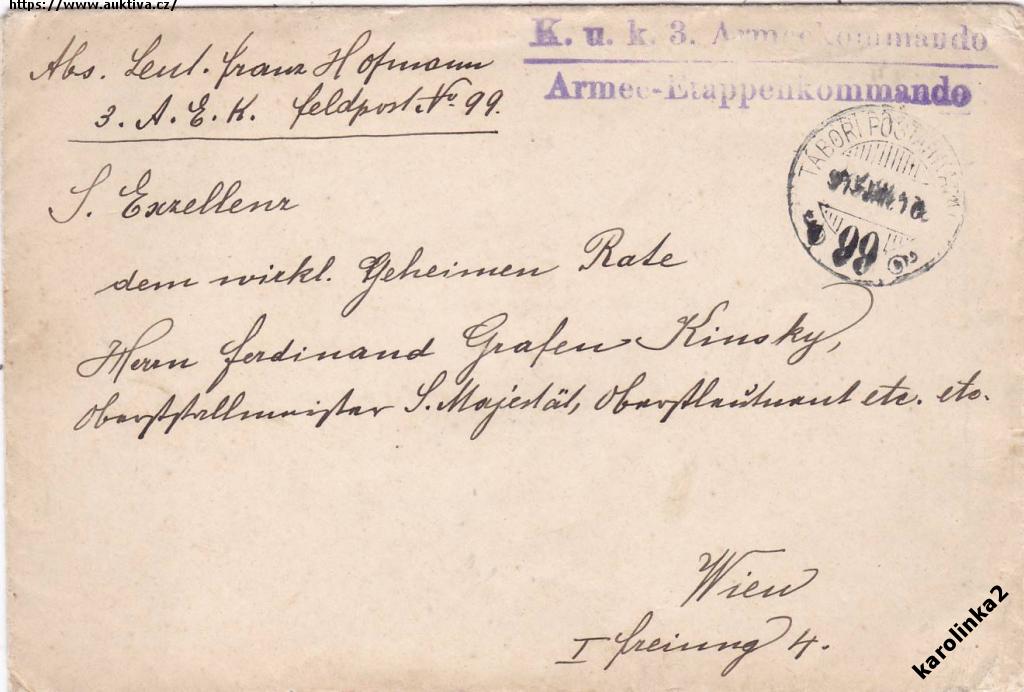 https://www.auktiva.cz/
Abs. Leut. Franz Hofmann
3. A. E. K. Feldpost No 99.
K. u. k. 3. Armeekommando
Armee-Etappenkommando
TÁBORI POSTAHIVATAL
99
S. Exzellenz
dem wirkl. Geheimen Rate
Herrn Ferdinand Grafen Kinsky,
Oberststallmeister S. Majestät, Oberstleutnant etc. etc.
Wien
I Freiung 4.
karolinka2